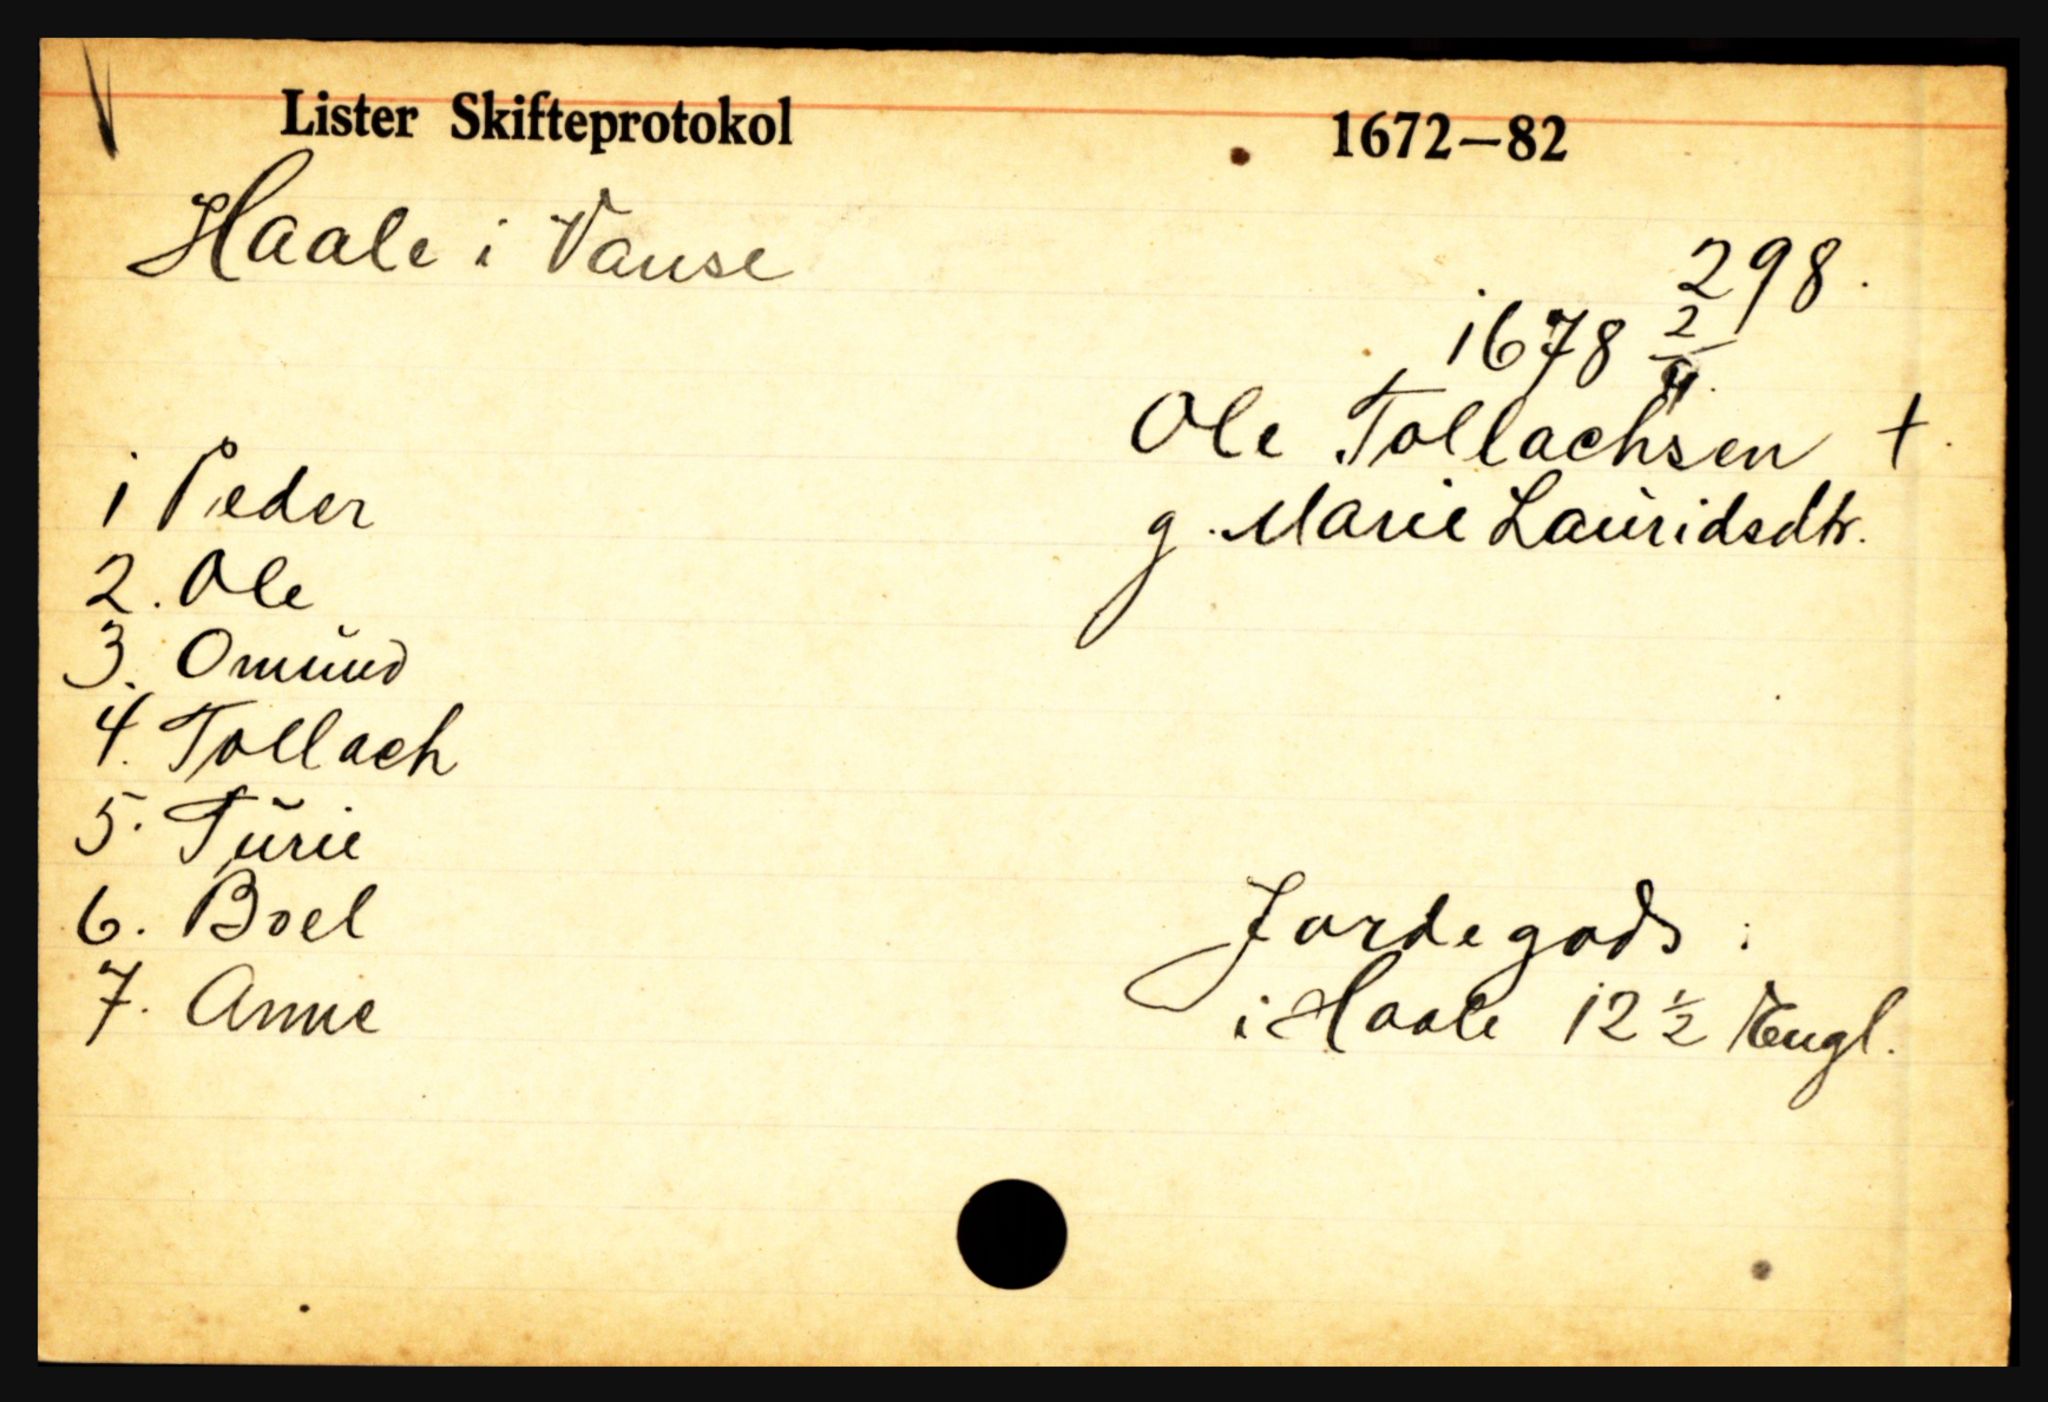 Lister Skifteprotokol 1672–82
Haale i Vanse
298.
1678 2/4.
Ole Tollachsen +.
g. Marie Lauridsdtr.
1 Peder
2. Ole
3. Omund
4. Tollach
5. Turie
6. Boel
7. Anne
Jordegods:
i Haale 12 1/2 Engl.